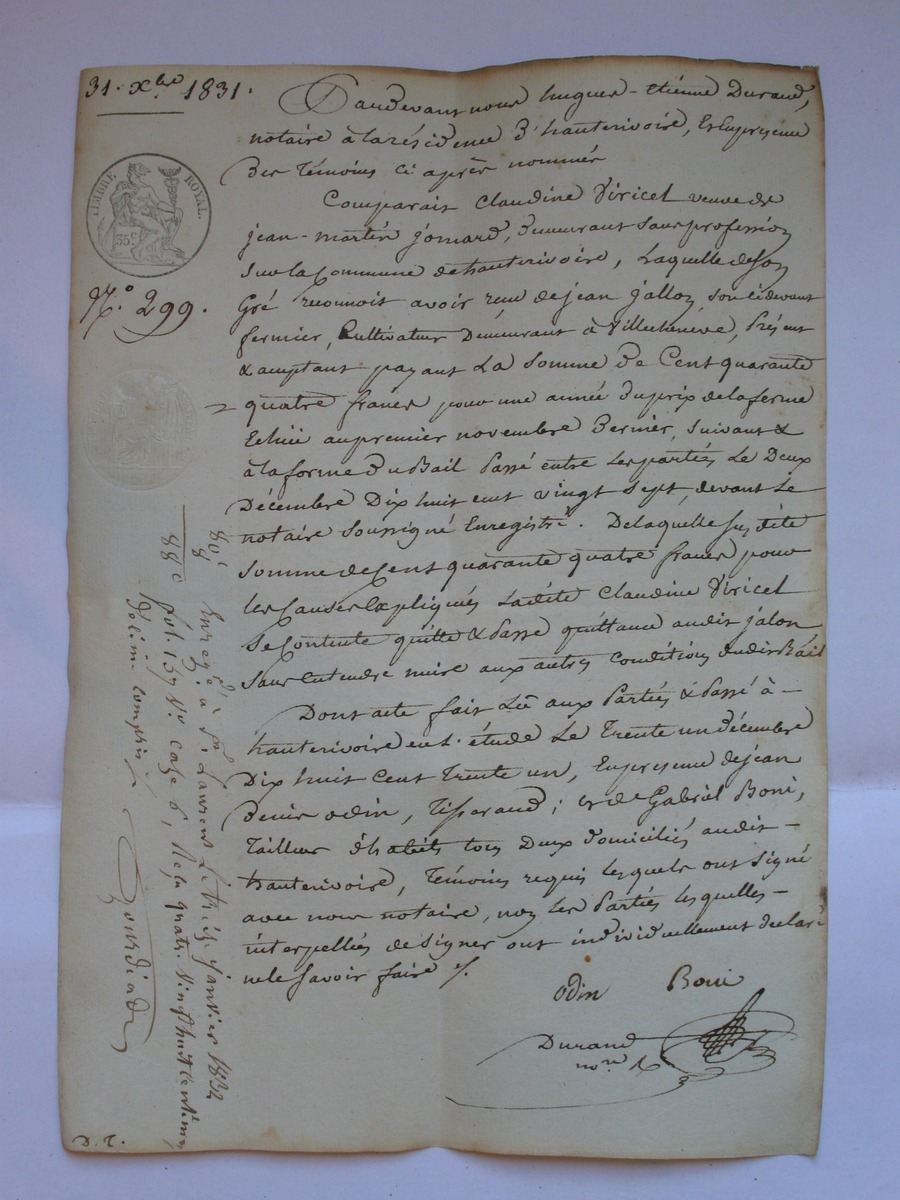 31. Xbre 1831.
TIMBRE ROYAL.
35 c
N.o 299.
Pardevant nous hugues-etiénne Durand,
notaire à la résidence d'hauterivoire, Et En presence
des témoins ci après nommés
Comparait Claudine Viricel veuve de
jean-martin jomard, demeurant sans profession
sur la Commune de hauterivoire, Laquelle de son
Gré reconnoit avoir reçu de jean jallon son ci devant
fermier, Cultivateur Demeurant à Villechenève, Présent
& acceptant payant La somme de Cent quarante
quatre francs pour une année du prix de la ferme
Echüe au premier novembre dernier, suivant &
à la forme du Bail Passé entre les parties Le Deux
Décembre Dix huit cent vingt sept, devant Le
notaire soussigné Enregistré. De laquelle susdite
somme de Cent quarante quatre francs pour
les Causes Expliquées Ladite Claudine Viricel
se Contente quitte & Passe quittance audit jalon
sans Entendre nuire aux autres conditions dudit Bail
Dont acte fait Lû aux Parties & Passé à -
hauterivoire en l'étude Le Trente un décembre
Dix huit Cent Trente un, En presence de jean
denis odin, Tisserand; et de Gabriel Boni,
Tailleur d'habits tous Deux domiciliés audit -
hauterivoire, Témoins requis lesquels ont signé
avec nous notaire, non les Parties lesquelles -
interpellées de signer ont individuellement declaré
ne le savoir faire ./.
odin Boni
Durand
nore
80 c
8
88 c
Enregé. à St. Laurent Le treize janvier 1832
fol. 137 Vo. case 6, Reçu quatre vingt huit centimes
décime compris
D. T.